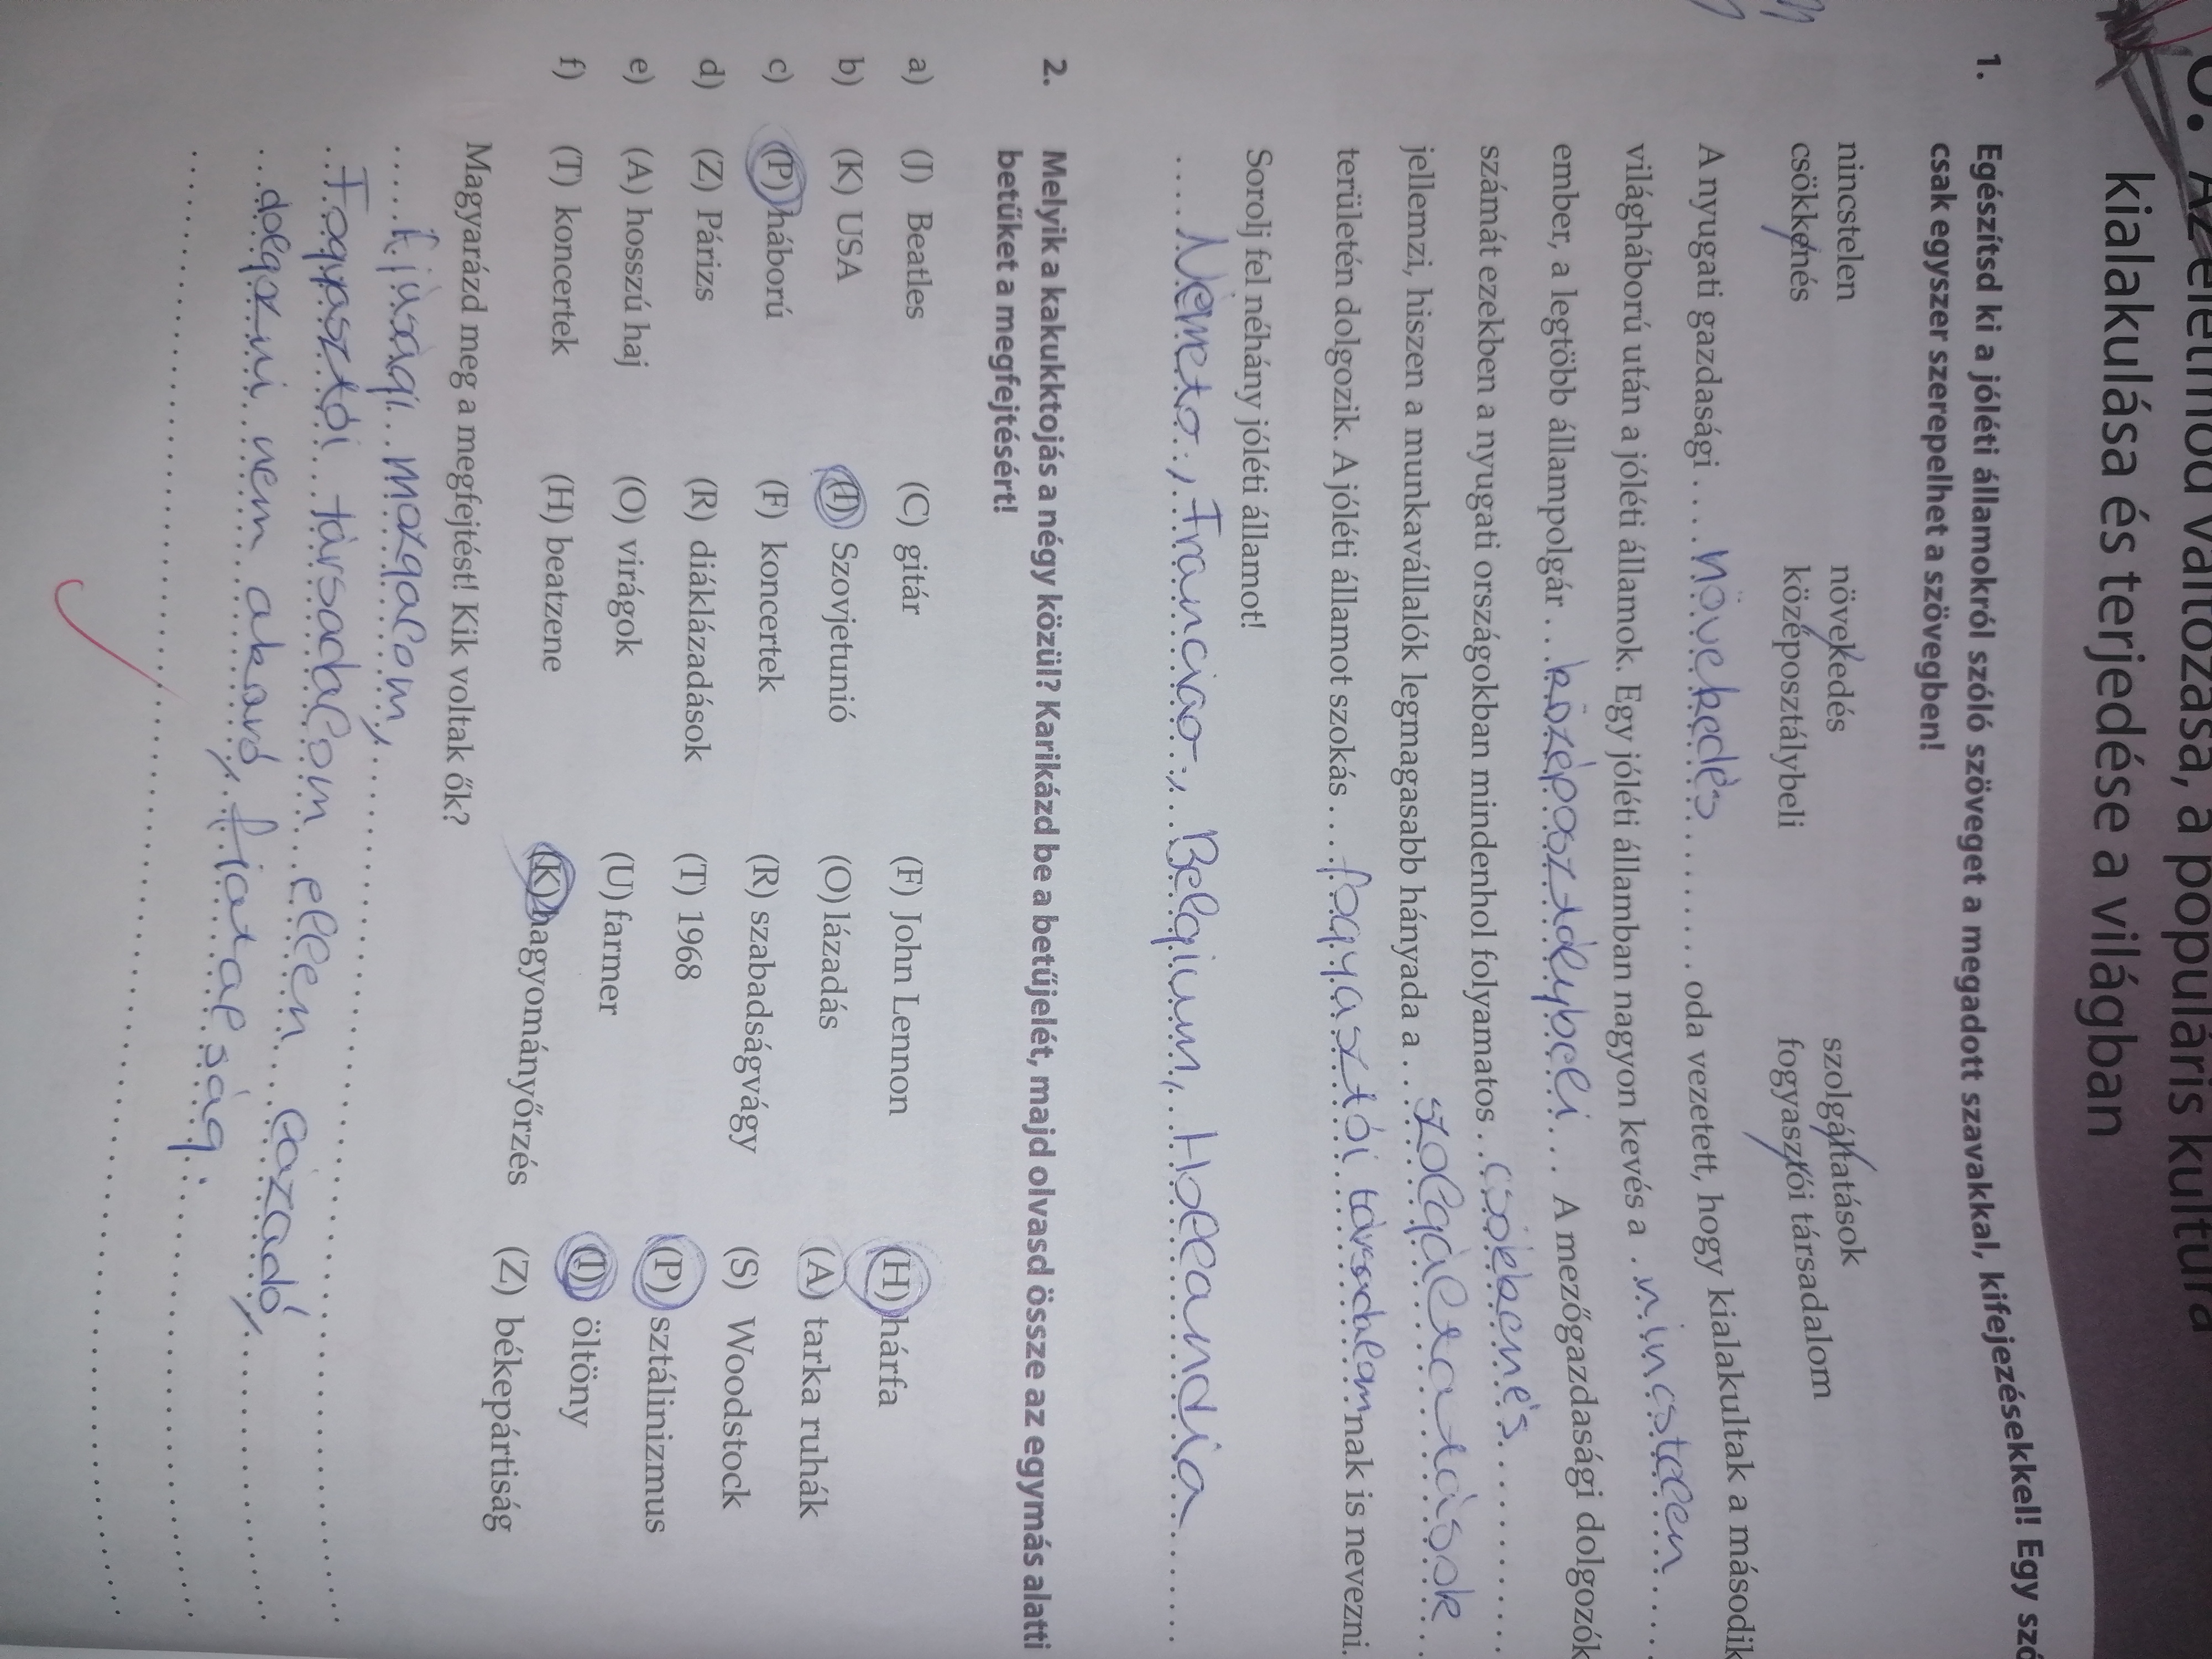 Az életmód változása, a populáris kultúra
kialakulása és terjedése a világban
1. Egészítsd ki a jóléti államokról szóló szöveget a megadott szavakkal, kifejezésekkel! Egy szó
csak egyszer szerepelhet a szövegben!
nincstelen növekedés szolgáltatások
csökkenés középosztálybeli fogyasztói társadalom
A nyugati gazdasági .... növekedés ........ oda vezetett, hogy kialakultak a második
világháború után a jóléti államok. Egy jóléti államban nagyon kevés a . nincstelen ....
ember, a legtöbb állampolgár .. középosztálybeli ... A mezőgazdasági dolgozók
számát ezekben a nyugati országokban mindenhol folyamatos .. csökkenés ..........
jellemzi, hiszen a munkavállalók legmagasabb hányada a ... szolgáltatások ..
területén dolgozik. A jóléti államot szokás .... fogyasztói társadalom nak is nevezni.
Sorolj fel néhány jóléti államot!
.... Németo., Franciao., Belgium, Hollandia ......
2. Melyik a kakukktojás a négy közül? Karikázd be a betűjelét, majd olvasd össze az egymás alatti
betűket a megfejtésért!
a) (J) Beatles (C) gitár (F) John Lennon (H) hárfa
b) (K) USA (I) Szovjetunió (O) lázadás (A) tarka ruhák
c) (P) háború (F) koncertek (R) szabadságvágy (S) Woodstock
d) (Z) Párizs (R) diáklázadások (T) 1968 (P) sztálinizmus
e) (A) hosszú haj (O) virágok (U) farmer (I) öltöny
f) (T) koncertek (H) beatzene (K) hagyományőrzés (Z) békepártiság
Magyarázd meg a megfejtést! Kik voltak ők?
..... Ifjúsági mozgalom,
.. Fogyasztói társadalom ellen lázadó,
... dolgozni nem akaró, fiatalság.